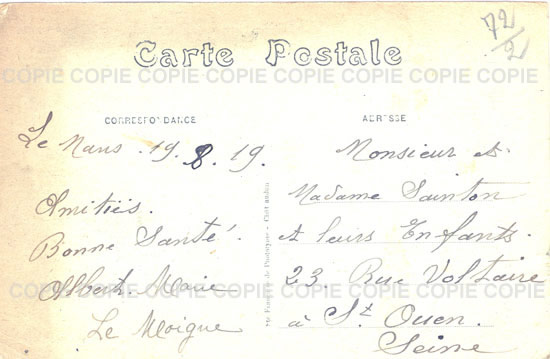 72/2
Carte Postale
COPIE COPIE COPIE COPIE COPIE COPIE COPIE COPIE
CORRESPONDANCE
Le Mans. 19. 8. 19.
Amitiés.
Bonne Santé.
Albert. Marie
Le Moigne
ADRESSE
Monsieur et
Madame Sainton
et leurs Enfants.
23. Rue Voltaire
à St Ouen.
Seine
COPIE COPIE COPIE COPIE COPIE COPIE COPIE COPIE
COPIE COPIE COPIE COPIE COPIE COPIE COPIE COPIE